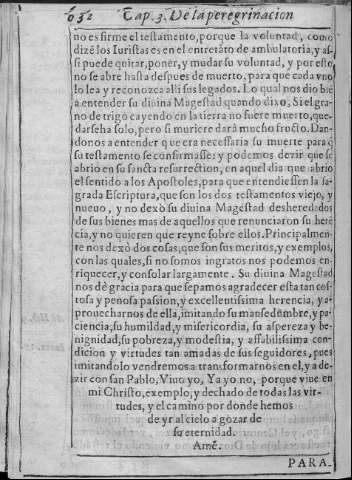 652 Cap. 3. De la peregrinacion
no es firme el testamento, porque la voluntad, como
dizē los Iuristas es en el entretāto de ambulatoria, y as-
si puede quitar, poner, y mudar su voluntad, y por esto
no se abre hasta despues de muerto, para que cada vno
lo lea y reconozca alli sus legados. Lo qual nos dio biē
a entender su diuina Magestad quando dixo, Si el gra-
no de trigo cayendo en la tierra no fuere muerto, que-
darseha solo, pero si muriere dará mucho fructo. Dan-
donos a entender que era necessaria su muerte para q̃
su testamento se confirmasse: y podemos dezir que se
abrio en su sancta resurrection, en aquel dia que abrio
el sentido a los Apostoles, para que entendiessen la sa-
grada Escriptura, que son los dos testamentos viejo, y
nueuo, y no dexò su diuina Magestad desheredados
de sus bienes mas de aquellos que renunciaron su herē
cia, y no quieren que reyne sobre ellos. Principalmen-
te nos dexò dos cosas, que son sus meritos, y exemplos,
con las quales, si no somos ingratos nos podemos en-
riquecer, y consolar largamente. Su diuina Magestad
nos dè gracia para que sepamos agradecer esta tan cos-
tosa y penosa passion, y excellentissima herencia, y a-
prouecharnos de ella, imitando su mansedūbre, y pa-
ciencia, su humildad, y misericordia, su aspereza y be-
nignidad, su pobreza, y modestia, y affabilissima con-
dicion y virtudes tan amadas de sus seguidores, pues
imitandolo vendremos a transformarnos en el, y a de-
zir con san Pablo, Viuo yo, Ya yo no, porque viue en
mi Christo, exemplo, y dechado de todas las vir-
tudes, y el camino por donde hemos
de yr al cielo a gozar de
su eternidad.
Amē.
PARA-